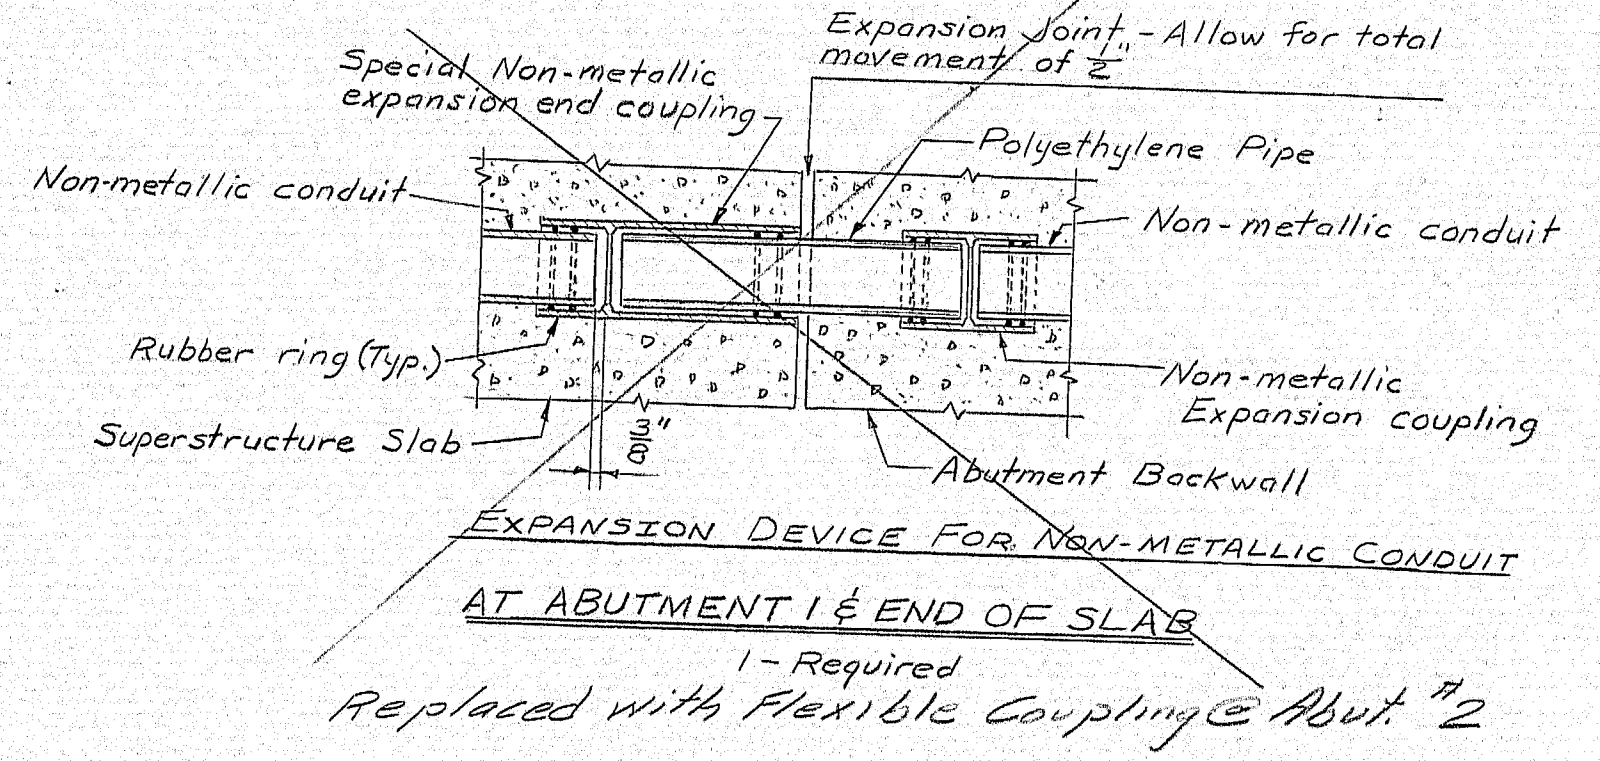 Expansion Joint - Allow for total
movement of 1/2"
Special Non-metallic
expansion end coupling
Polyethylene Pipe
Non-metallic conduit
Non-metallic conduit
Rubber ring (Typ.)
Non-metallic
Expansion coupling
Superstructure Slab
3/8"
Abutment Backwall
EXPANSION DEVICE FOR NON-METALLIC CONDUIT
AT ABUTMENT 1 & END OF SLAB
1 - Required
Replaced with Flexible Coupling @ Abut. #2